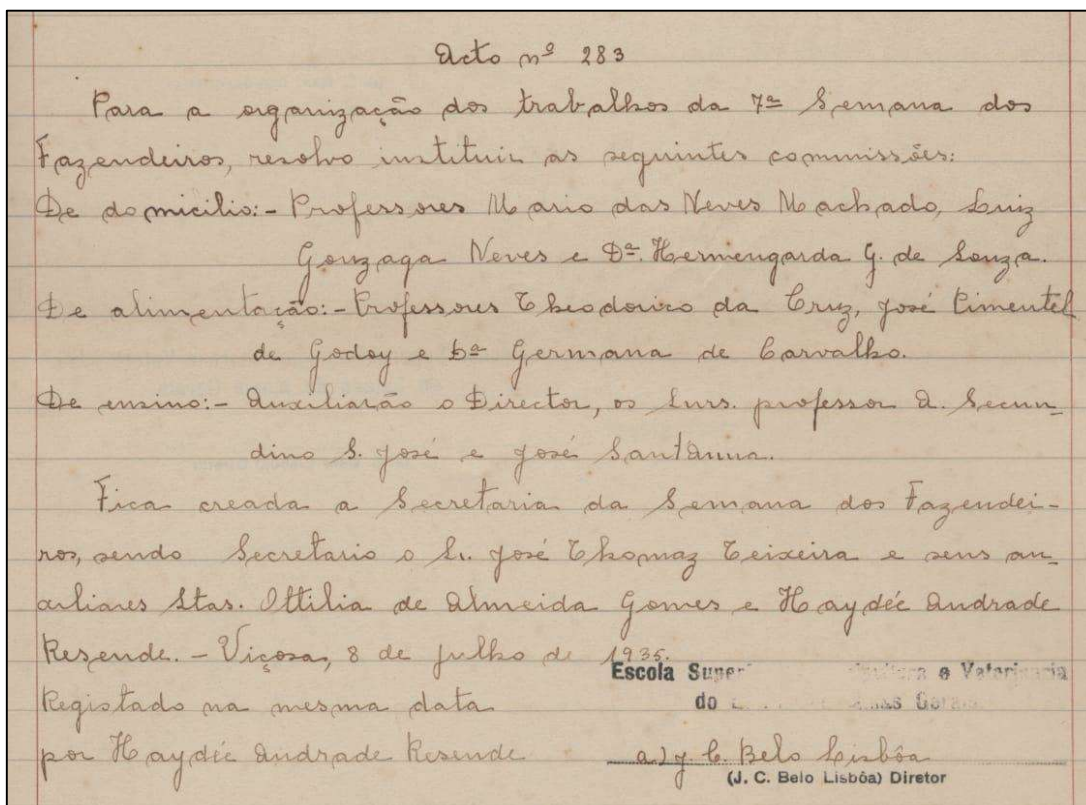 Acto nº 283
Para a organização dos trabalhos da 7ª Semana dos
Fazendeiros, resolvo instituir as seguintes commissões:
De domicilio:- Professores Mario das Neves Machado, Luiz
Gonzaga Neves e Dª. Hermengarda G. de Souza.
De alimentação:- Professores Theodorico da Cruz, José Pimentel
de Godoy e Dª Germana de Carvalho.
De ensino:- Auxiliarão o Director, os Snrs. professor A. Secun-
dino S. José e José Sant'Anna.
Fica creada a Secretaria da Semana dos Fazendei-
ros, sendo Secretario o Sr. José Thomaz Teixeira e seus au-
xiliares Stas. Ottilia de Almeida Gomes e Haydée Andrade
Resende. - Viçosa, 8 de julho de 1935.
Escola Super e Veterinaria
Registado na mesma data
do nas Geraes
por Haydée Andrade Resende
a) J. C. Belo Lisbôa
(J. C. Belo Lisbôa) Diretor